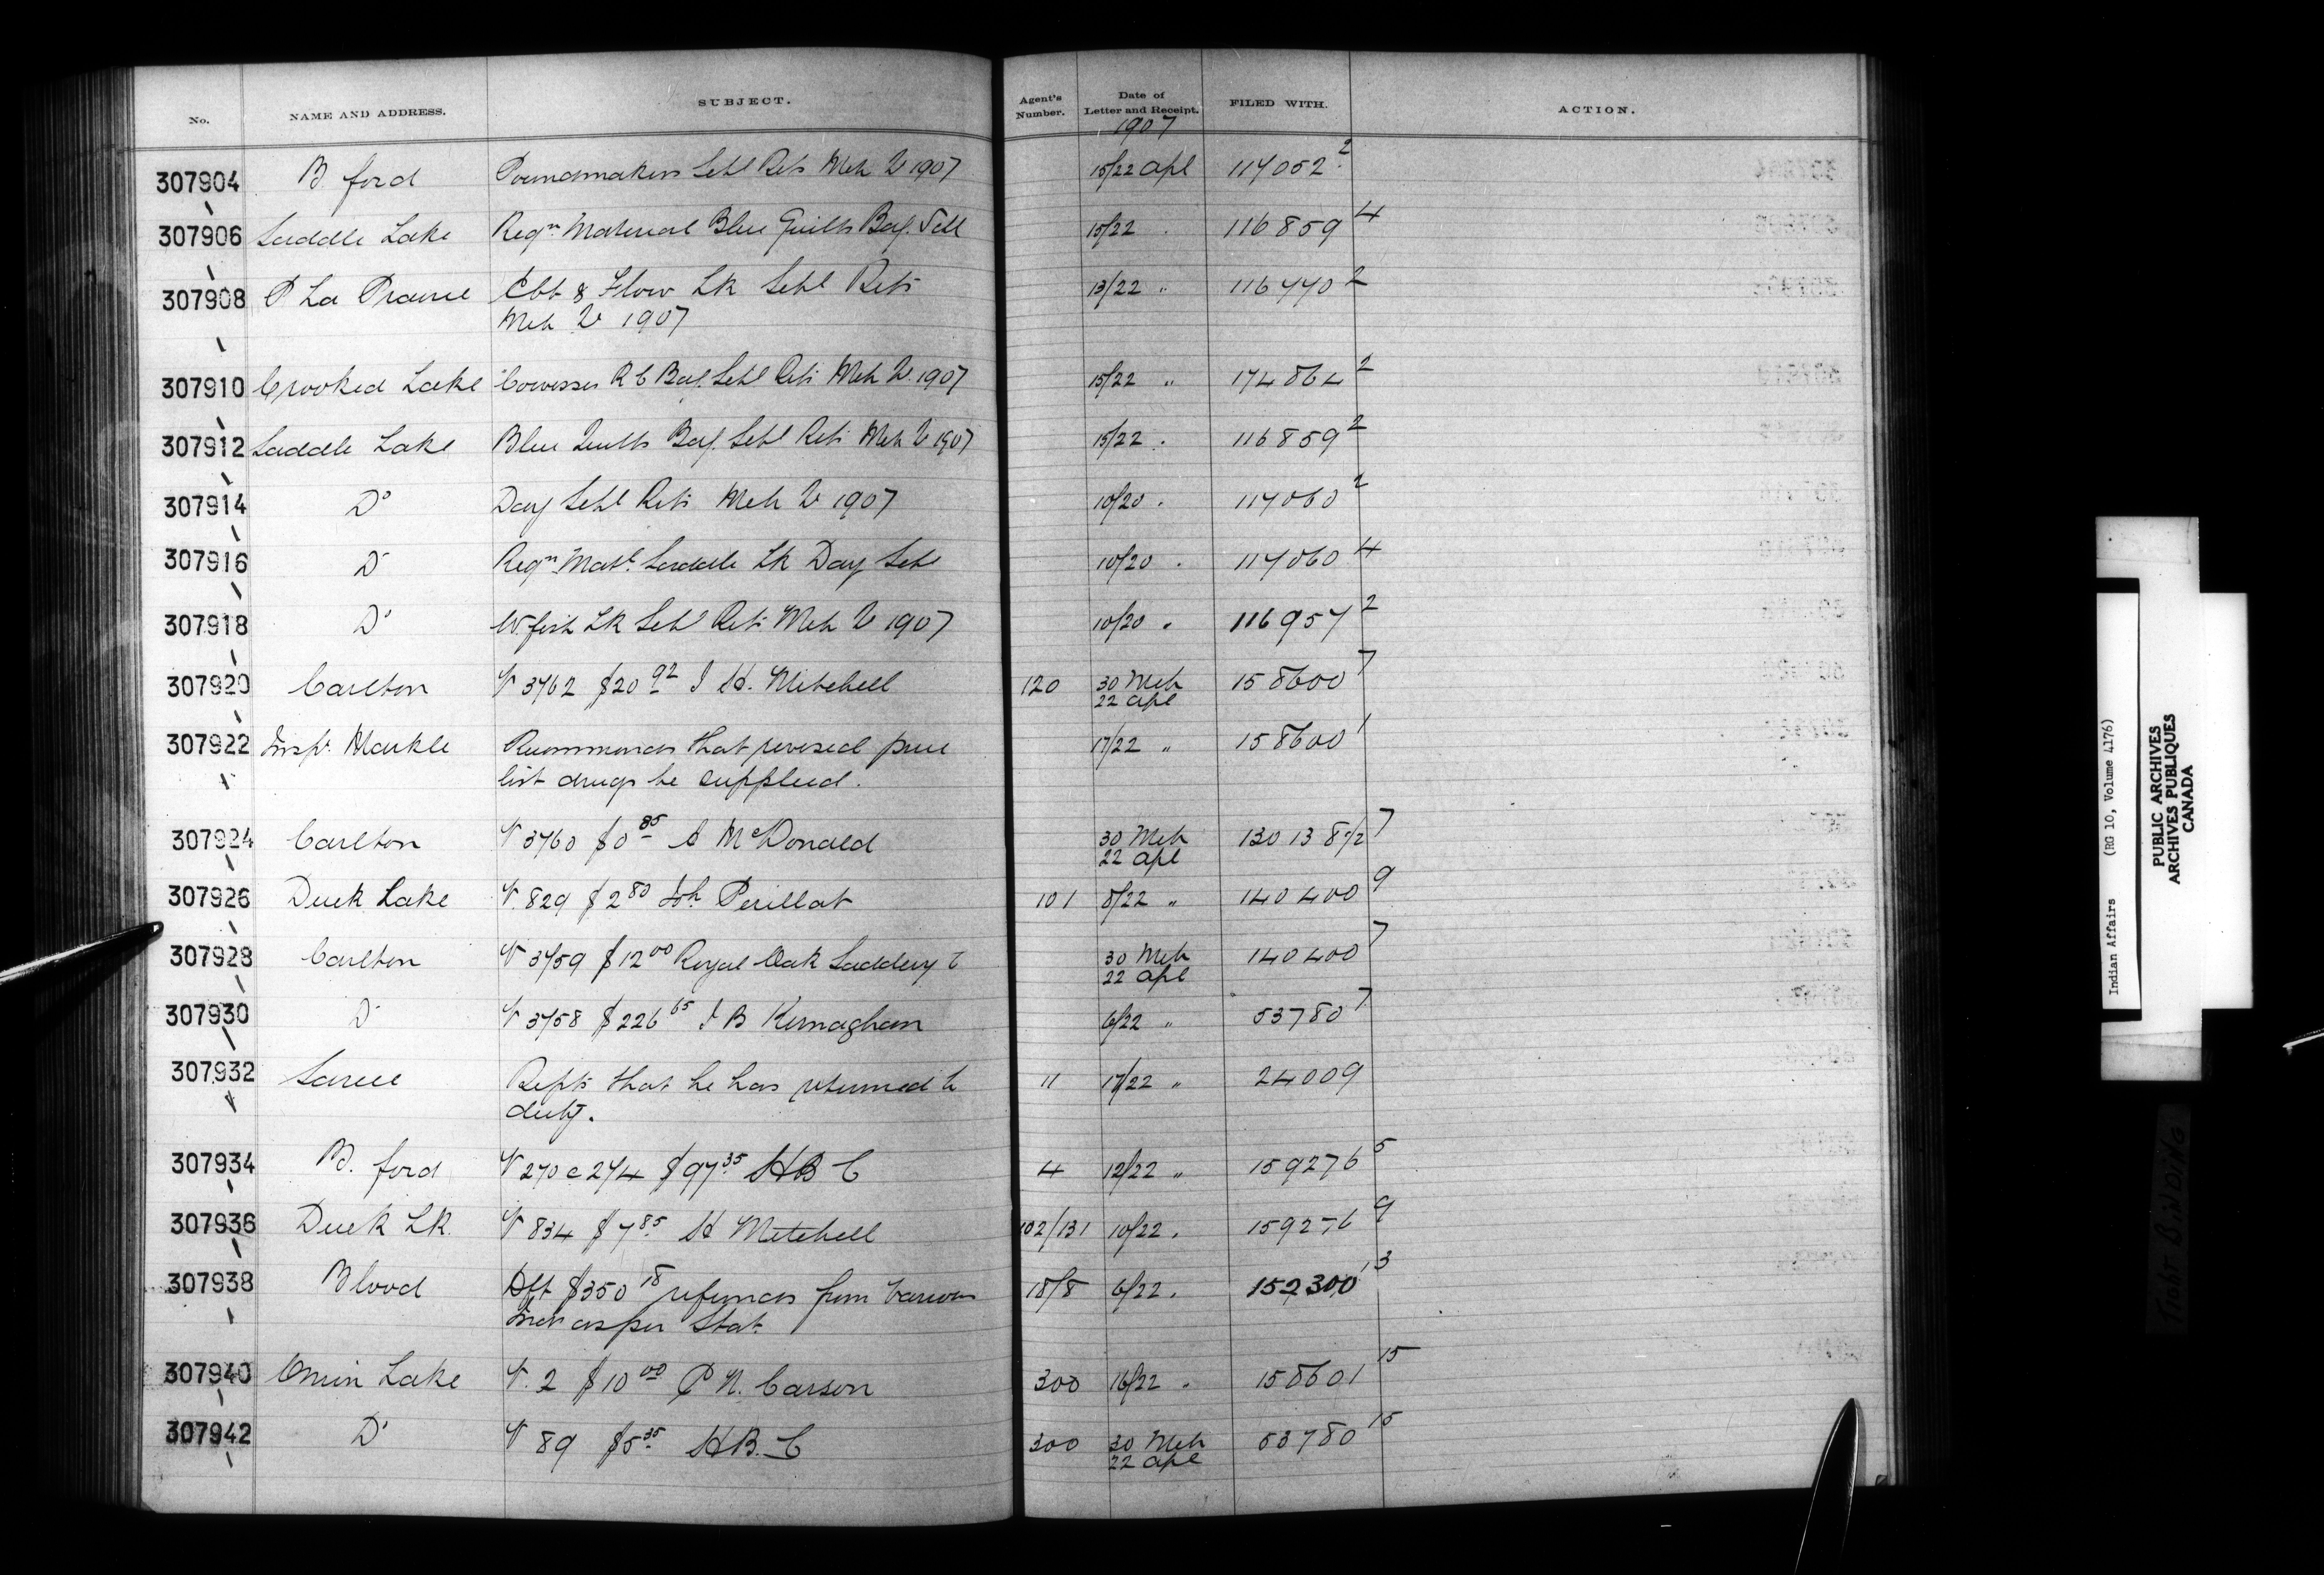 No. NAME AND ADDRESS. SUBJECT. Agent's Number. Date of Letter and Receipt. FILED WITH. ACTION.
1907
307904 B. ford Poundmakers Schl Rets Mch Qr 1907 15/22 Apl 117052 2
307906 Saddle Lake Reqn Material Blue Quills Bdg. Schl 15/22 " 116859 4
307908 P La Prairie & Lk Schl Rets 13/22 " 116770 2
Mch Qr 1907
307910 Crooked Lake Cowesses R C Bdg. Schl Rets Mch Qr 1907 15/22 " 174864 2
307912 Saddle Lake Blue Quills Bdg. Schl Rets Mch Qr 1907 15/22 . 116859 2
307914 Do Day Schl Rets Mch Qr 1907 10/20 . 117060 2
307916 Do Reqn Matl Saddle Lk Day Schl 10/20 . 117060 4
307918 Do W. fish Lk Schl Rets Mch Qr 1907 10/20 " 116957 2
307920 Carlton V 3762 $20 92 J H. Mitchell 120 30 Mch 158600 7
22 Apl
307922 Inspr. Markle Recommends that revised price 17/22 " 158600 1
list drugs be supplied.
307924 Carlton V 3760 $0 85 A McDonald 30 Mch 130138 1/2 7
22 Apl
307926 Duck Lake V. 829 $2 80 Perillat 101 8/22 " 140400 9
307928 Carlton V 3759 $12 00 Royal Oak Saddlery C 30 Mch 140400 7
22 Apl
307930 Do V 3758 $226 65 J B Kernaghan 6/22 " 53780 7
307932 Sarcee Repts that he has returned to 11 17/22 " 24009
duty.
307934 B. ford V 270 c 274 $97 35 H B C 4 12/22 " 159276 5
307936 Duck Lk. V 834 $7 85 H Mitchell 102/131 10/22 . 159276 9
307938 Blood Dft $350 18 refunds from various 18/8 6/22 . 152300 3
Inds as per Stat.
307940 Onion Lake V. 2 $10 00 P N. Carson 300 16/22 " 158601 15
307942 Do V 89 $5 35 H B. C 300 30 Mch 53780 15
22 Apl
Indian Affairs (RG 10, Volume 4176)
PUBLIC ARCHIVES
ARCHIVES PUBLIQUES
CANADA
TIGHT BINDING